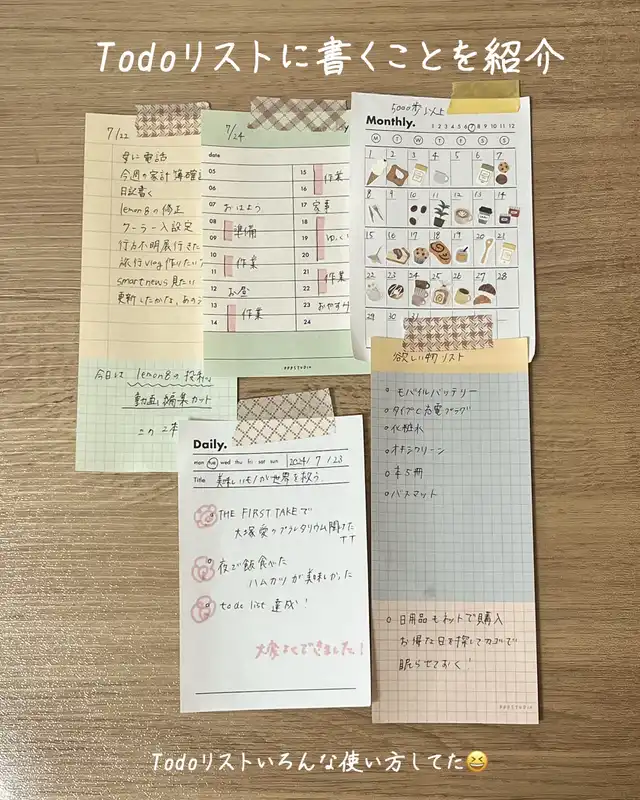 Todoリストに書くことを紹介
7/22
母に電話
今週の家計簿確認
日記書く
lemon8の修正
クーラー入設定
行方不明展行きた
旅行vlog作りたい
smartnews見たい
更新したかな、あの
今日は lemon8の投稿
動画編集カット
この2本
7/24
date
05
06
07 おはよう
08 準備
09
10 作業
11
12 お昼
13 作業
14
15 作業
16
17 家事
18
19
20
21 作業
22
23 おやすみ
24
PPPSTUDIO
5000歩以上
Monthly.
1 2 3 4 5 6 7 8 9 10 11 12
M T W T F S S
1 2 3 4 5 6 7
8 9 10 11 12 13 14
15 16 17 18 19 20 21
22 23 24 25 26 27 28
29 30 31
Daily.
mon tue wed thu fri sat sun 2024/7/23
Title 美味しいモノが世界を救う.
THE FIRST TAKEで
大塚愛のプラネタリウム聞けた
TT
夜ご飯食べた
ハムカツが美味しかった
todo list 達成!
大変よくできました!
欲しい物リスト
モバイルバッテリー
タイプC充電プラグ
化粧水
オキシクリーン
本5冊
バスマット
日用品もネットで購入
お得な日を探してカゴで
眠らせておく!
PPPSTUDIO
Todoリストいろんな使い方してた😆